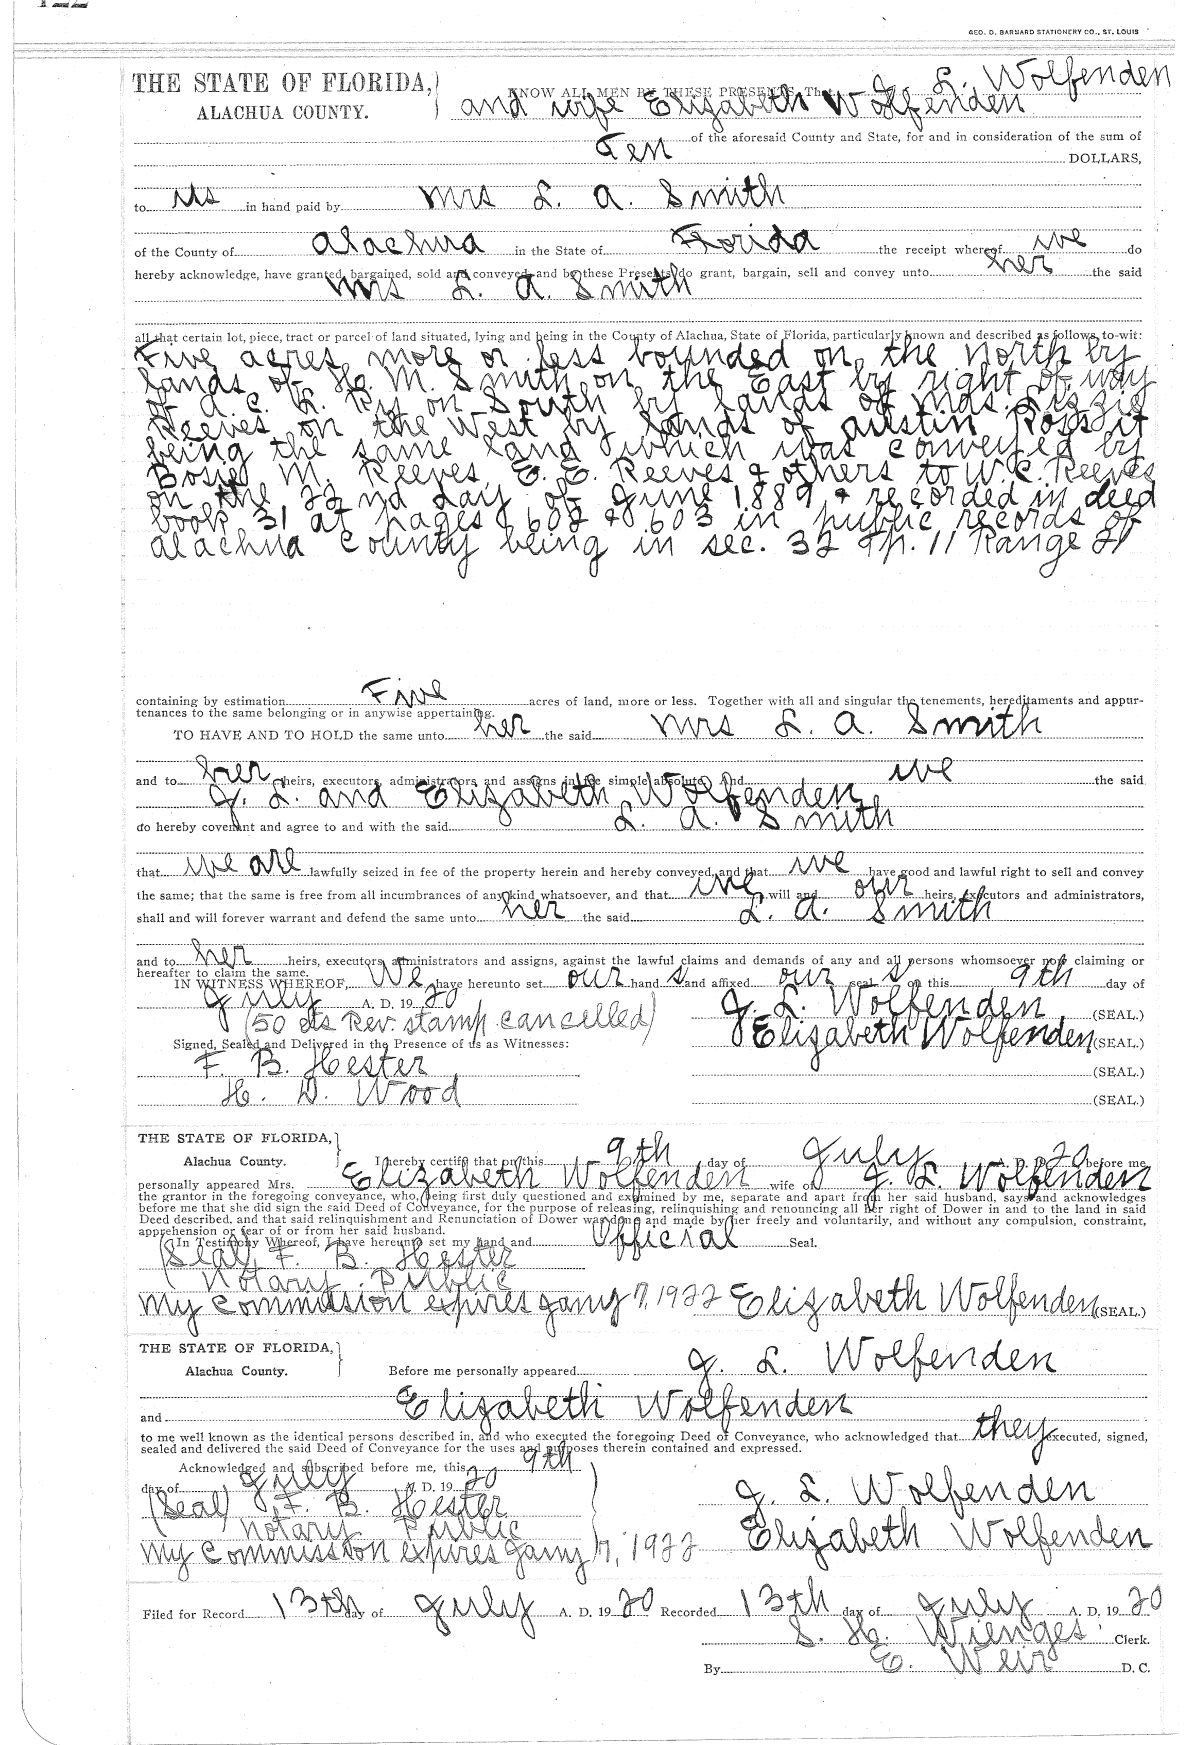 122
GEO. D. BARNARD STATIONERY CO., ST. LOUIS
THE STATE OF FLORIDA,
ALACHUA COUNTY.
KNOW ALL MEN BY THESE PRESENTS, That J. L. Wolfenden
and wife Elizabeth Wolfenden
of the aforesaid County and State, for and in consideration of the sum of
Ten DOLLARS,
to Us in hand paid by Mrs L. A. Smith
of the County of Alachua in the State of Florida the receipt whereof we do
hereby acknowledge, have granted, bargained, sold and conveyed, and by these Presents do grant, bargain, sell and convey unto her the said
Mrs L. A. Smith
all that certain lot, piece, tract or parcel of land situated, lying and being in the County of Alachua, State of Florida, particularly known and described as follows, to-wit:
Five acres more or less bounded on the North by
lands of H. M. Smith on the East by right of way
of A. C. L. Ry on South by lands of Mrs. Lizzie
Reeves on the West by lands of Austin Ross it
being the same land which was conveyed by
M. Reeves, E. E. Reeves & others to W. C. Reeves
on the 22nd day of June 1889, & recorded in deed
book 31 at pages 602 & 603 in public records of
Alachua County being in sec. 32 Tp. 11 Range 21
containing by estimation Five acres of land, more or less. Together with all and singular the tenements, hereditaments and appur-
tenances to the same belonging or in anywise appertaining.
TO HAVE AND TO HOLD the same unto her the said Mrs L. A. Smith
and to her heirs, executors, administrators and assigns in fee simple absolute. And we the said
J. L. and Elizabeth Wolfenden
do hereby covenant and agree to and with the said L. A. Smith
that we are lawfully seized in fee of the property herein and hereby conveyed, and that we have good and lawful right to sell and convey
the same; that the same is free from all incumbrances of any kind whatsoever, and that we will and our heirs, executors and administrators,
shall and will forever warrant and defend the same unto her the said L. A. Smith
and to her heirs, executors, administrators and assigns, against the lawful claims and demands of any and all persons whomsoever now claiming or
hereafter to claim the same.
IN WITNESS WHEREOF, We have hereunto set our hand s and affixed our seal s on this 9th day of
July A. D. 1920 J. L. Wolfenden (SEAL.)
(50 cts Rev. stamp cancelled) Elizabeth Wolfenden (SEAL.)
Signed, Sealed and Delivered in the Presence of us as Witnesses:
F. B. Hester (SEAL.)
H. D. Wood (SEAL.)
THE STATE OF FLORIDA,
Alachua County. I hereby certify that on this 9th day of July A. D. 1920 before me
personally appeared Mrs. Elizabeth Wolfenden wife of J. L. Wolfenden
the grantor in the foregoing conveyance, who, being first duly questioned and examined by me, separate and apart from her said husband, says and acknowledges
before me that she did sign the said Deed of Conveyance, for the purpose of releasing, relinquishing and renouncing all her right of Dower in and to the land in said
Deed described, and that said relinquishment and Renunciation of Dower was done and made by her freely and voluntarily, and without any compulsion, constraint,
apprehension or fear of or from her said husband.
In Testimony Whereof, I have hereunto set my hand and Official Seal.
(Seal) F. B. Hester
Notary Public
My Commission expires Jany 7, 1922 Elizabeth Wolfenden (SEAL.)
THE STATE OF FLORIDA,
Alachua County. Before me personally appeared J. L. Wolfenden
and Elizabeth Wolfenden
to me well known as the identical persons described in, and who executed the foregoing Deed of Conveyance, who acknowledged that they executed, signed,
sealed and delivered the said Deed of Conveyance for the uses and purposes therein contained and expressed.
Acknowledged and subscribed before me, this 9th
day of July A. D. 1920 J. L. Wolfenden
(Seal) F. B. Hester
Notary Public Elizabeth Wolfenden
My Commission expires Jany 7, 1922
Filed for Record 13th day of July A. D. 1920 Recorded 13th day of July A. D. 1920
S. H. Wienges Clerk.
By E. Weir D. C.